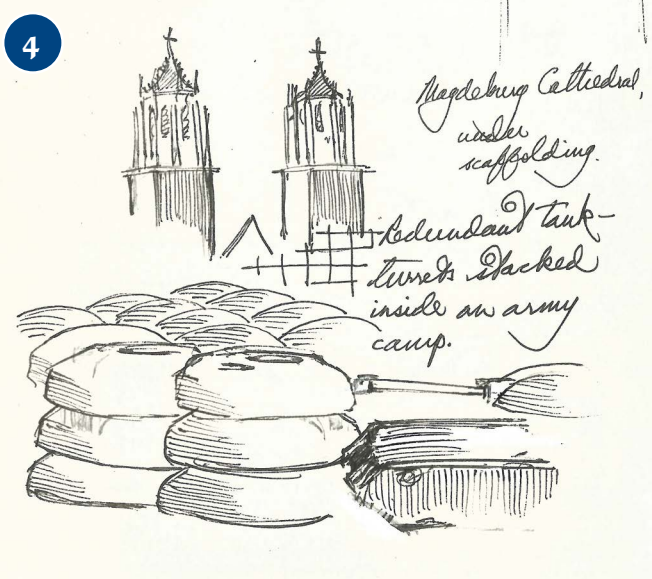 4
Magdeburg Cathedral,
under
scaffolding.
Redundant tank-
turrets stacked
inside an army
camp.